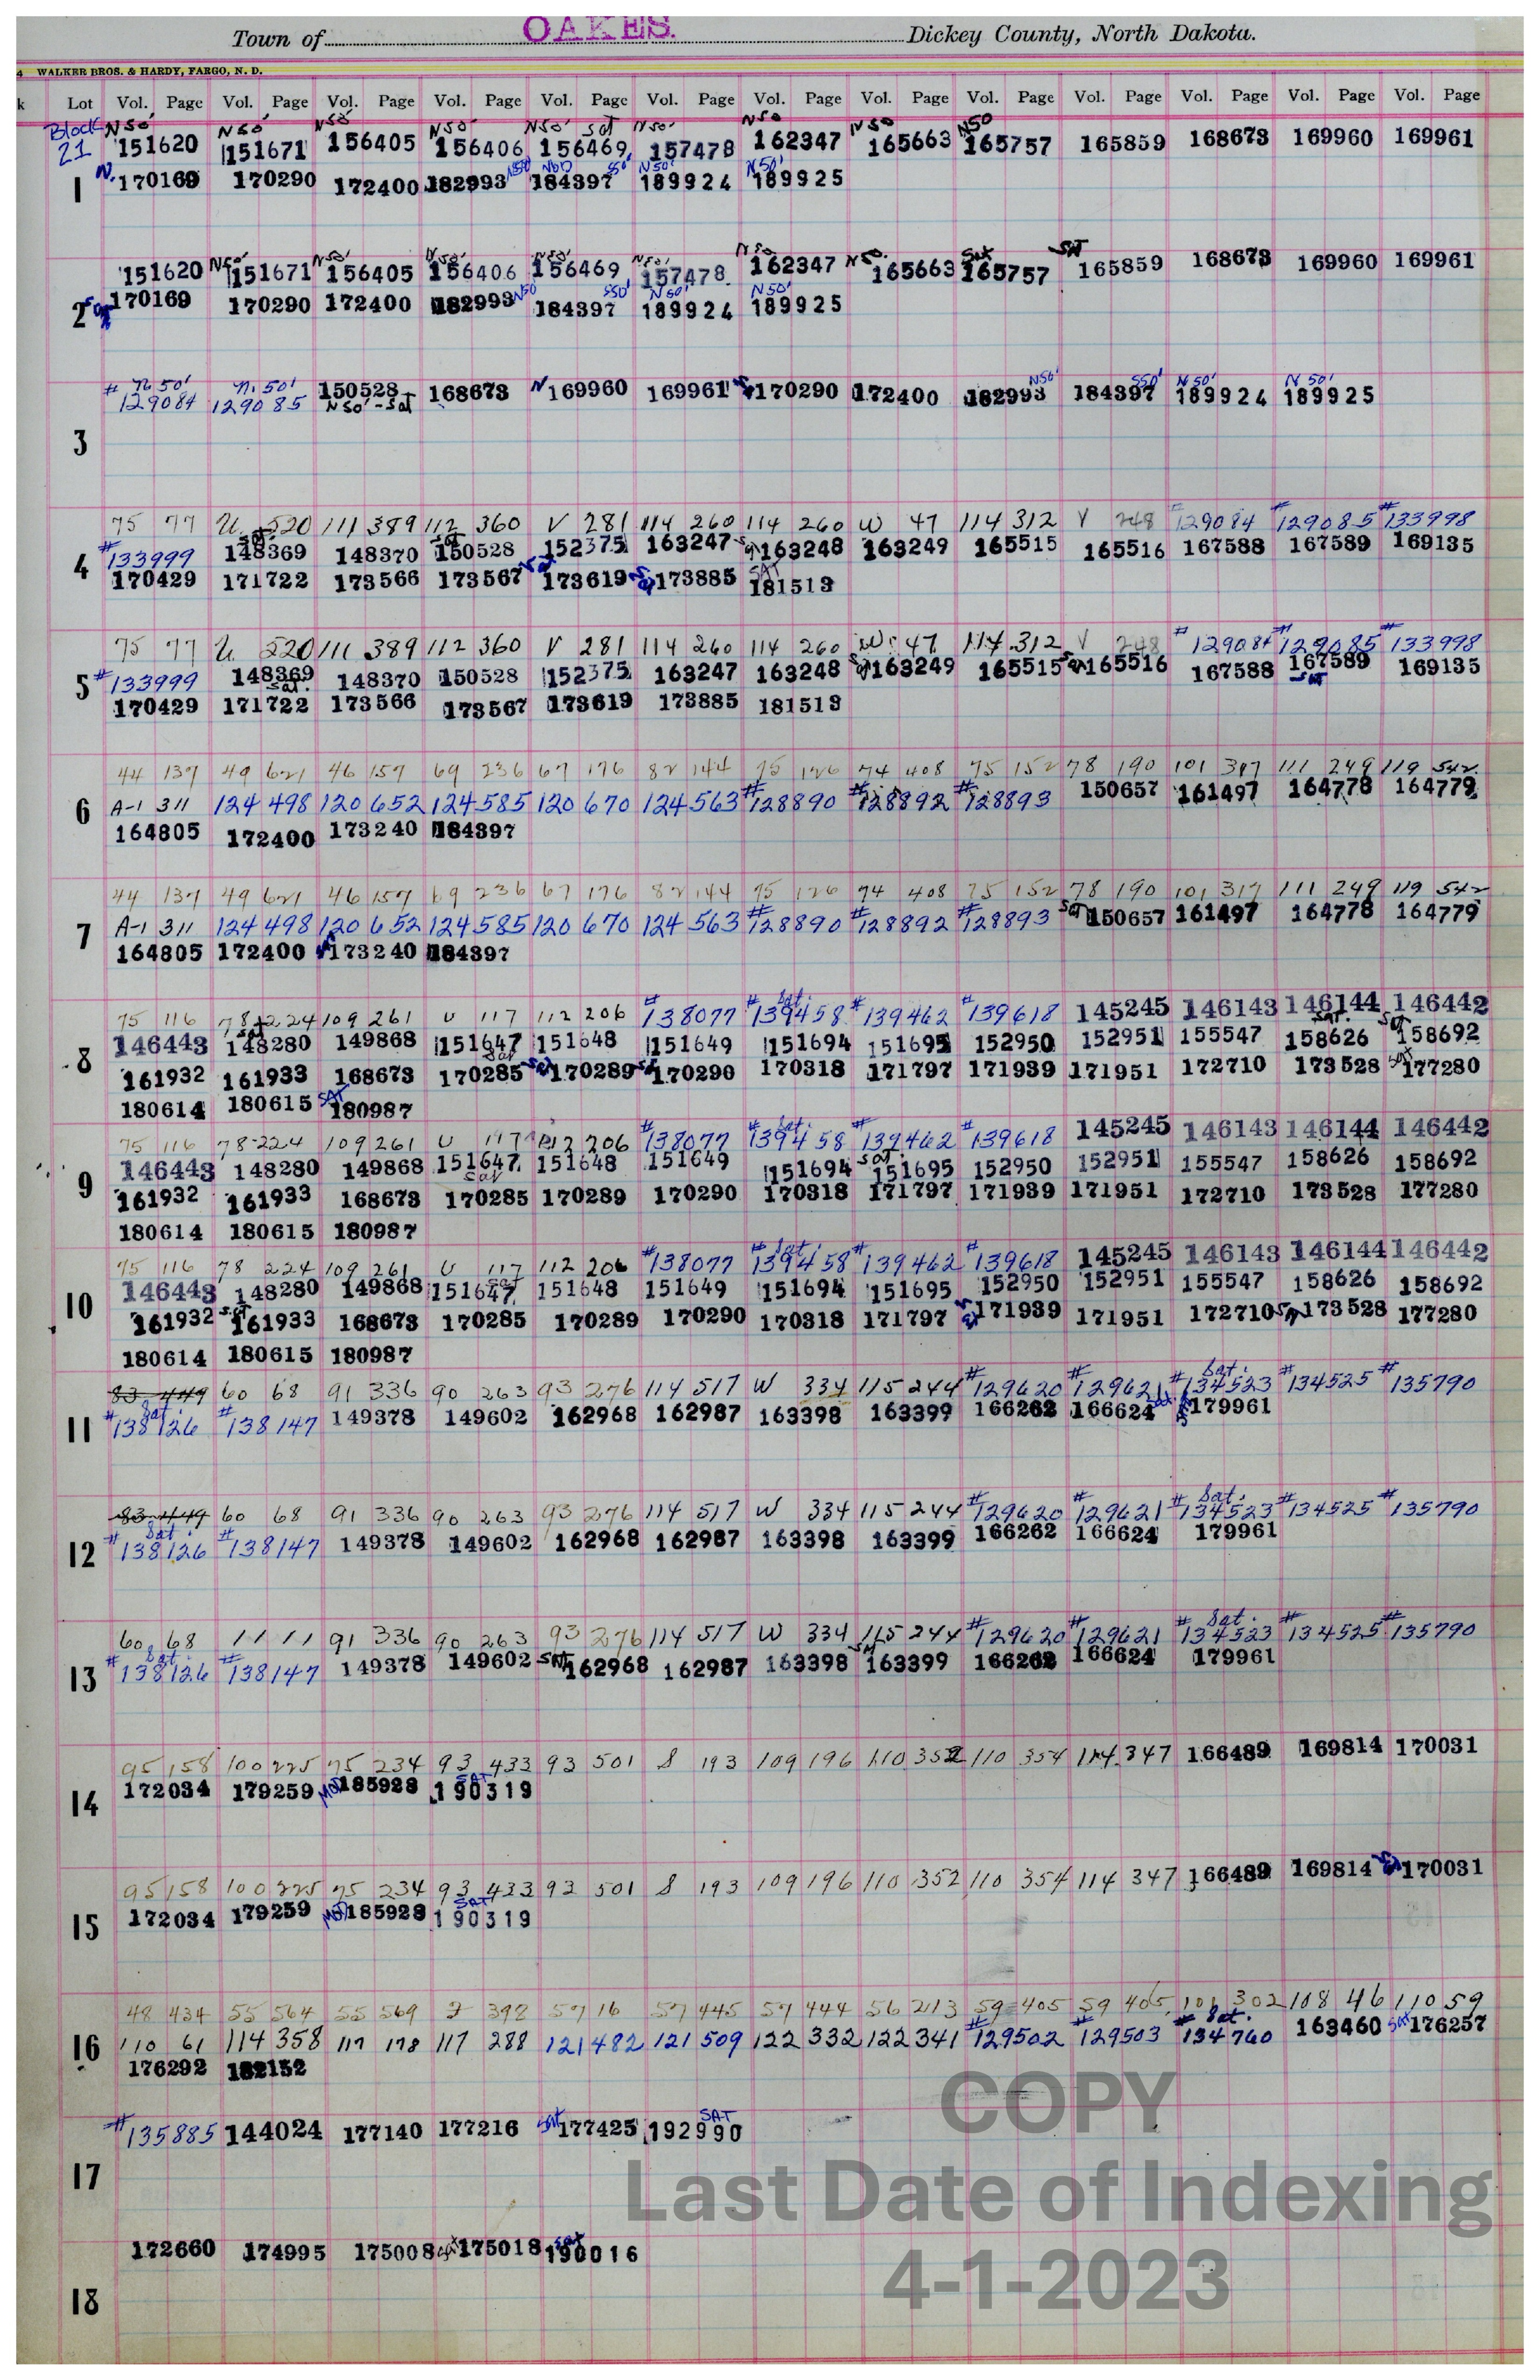 Town of OAKES. Dickey County, North Dakota.
4 WALKER BROS. & HARDY, FARGO, N. D.
k Lot Vol. Page Vol. Page Vol. Page Vol. Page Vol. Page Vol. Page Vol. Page Vol. Page Vol. Page Vol. Page Vol. Page Vol. Page Vol. Page
Block N 50' N 50' N 50' N 50' N 50' sat N 50' N 50 N 50 N 50
21 151620 151671 156405 156406 156469 157478 162347 165663 165757 165859 168673 169960 169961
N50' N50 S50' N 50' N 50'
1 N. 170169 170290 172400 182993 184397 189924 189925
N 50' N 50' N 50' N 50' N 50' N 50 N 50 Sat Sat
151620 151671 156405 156406 156469 157478 162347 165663 165757 165859 168673 169960 169961
N50' S50' N 50' N 50'
2 170169 170290 172400 182993 184397 189924 189925
# N. 50' N. 50' N50' S50' N 50' N 50'
129084 129085 150528 168673 N 169960 169961 170290 172400 182993 184397 189924 189925
N 50' - Sat
3
75 77 U 520 111 389 112 360 V 281 114 260 114 260 W 47 114 312 V 248 #129084 #129085 #133998
Sat. Sat
4 #133999 148369 148370 150528 152375 163247 163248 163249 165515 165516 167588 167589 169135
170429 171722 173566 173567 Sat 173619 173885 SAT 181513
75 77 U 520 111 389 112 360 V 281 114 260 114 260 W 47 114 312 V 248 #129084 #129085 #133998
5 #133999 148369 148370 150528 152375 163247 163248 Sat 163249 165515 Sat 165516 167588 167589 169135
Sat. Sat
170429 171722 173566 173567 173619 173885 181513
44 137 49 621 46 157 69 236 67 176 82 144 75 126 74 408 75 152 78 190 101 317 111 249 119 542
6 A-1 311 124 498 120 652 124 585 120 670 124 563 #128890 #128892 #128893 150657 161497 164778 164779
164805 172400 173240 184397
44 137 49 621 46 157 69 236 67 176 82 144 75 126 74 408 75 152 78 190 101 317 111 249 119 542
7 A-1 311 124 498 120 652 124 585 120 670 124 563 #128890 #128892 #128893 Sat 150657 161497 164778 164779
164805 172400 173240 184397
Sat.
75 116 78 224 109 261 U 117 112 206 #138077 #139458 #139462 #139618 145245 146143 146144 146442
Sat Sat. Sat
8 146443 148280 149868 151647 151648 151649 151694 151695 152950 152951 155547 158626 158692
Sat
161932 161933 168673 170285 Sat 170289 Sat 170290 170318 171797 171939 171951 172710 173528 Sat 177280
180614 180615 SAT 180987
Sat.
75 116 78-224 109 261 U 117 112 206 #138077 #139458 #139462 #139618 145245 146143 146144 146442
Sat.
9 146443 148280 149868 151647 151648 151649 151694 151695 152950 152951 155547 158626 158692
Sat
161932 161933 168673 170285 170289 170290 170318 171797 171939 171951 172710 173528 177280
180614 180615 180987
Sat.
75 116 78 224 109 261 U 117 112 206 #138077 #139458 #139462 #139618 145245 146143 146144 146442
Sat
10 146443 148280 149868 151647 151648 151649 151694 151695 152950 152951 155547 158626 158692
161932 Sat 161933 168673 170285 170289 170290 170318 171797 171939 171951 172710 Sat 173528 177280
180614 180615 180987
Sat.
83 449 60 68 91 336 90 263 93 276 114 517 W 334 115 244 #129620 #129621 #134523 #134525 #135790
Sat.
11 #138126 #138147 149378 149602 162968 162987 163398 163399 166262 166624 Sat. 179961
Sat.
83 449 60 68 91 336 90 263 93 276 114 517 W 334 115 244 #129620 #129621 #134523 #134525 #135790
Sat.
12 #138126 #138147 149378 149602 162968 162987 163398 163399 166262 166624 179961
Sat.
60 68 11 11 91 336 90 263 93 276 114 517 W 334 115 244 #129620 #129621 #134523 #134525 #135790
Sat.
13 #138126 #138147 149378 149602 Sat 162968 162987 163398 Sat 163399 166262 166624 179961
95 158 100 225 75 234 93 433 93 501 S 193 109 196 110 352 110 354 114 347 166489 169814 170031
SAT
14 172034 179259 185928 190319
95 158 100 225 75 234 93 433 93 501 S 193 109 196 110 352 110 354 114 347 166489 169814 170031
SAT
15 172034 179259 185928 190319
48 434 55 564 55 569 392 57 16 57 445 57 444 56 213 59 405 59 405 101 302 108 46 110 59
Sat.
16 110 61 114 358 117 178 117 288 121 482 121 509 122 332 122 341 #129502 #129503 #134760 163460 Sat 176257
176292 182152
SAT
#135885 144024 177140 177216 Sat 177425 192990
17
Sat
172660 174995 175008 Sat 175018 190016
18
COPY
Last Date of Indexing
4-1-2023